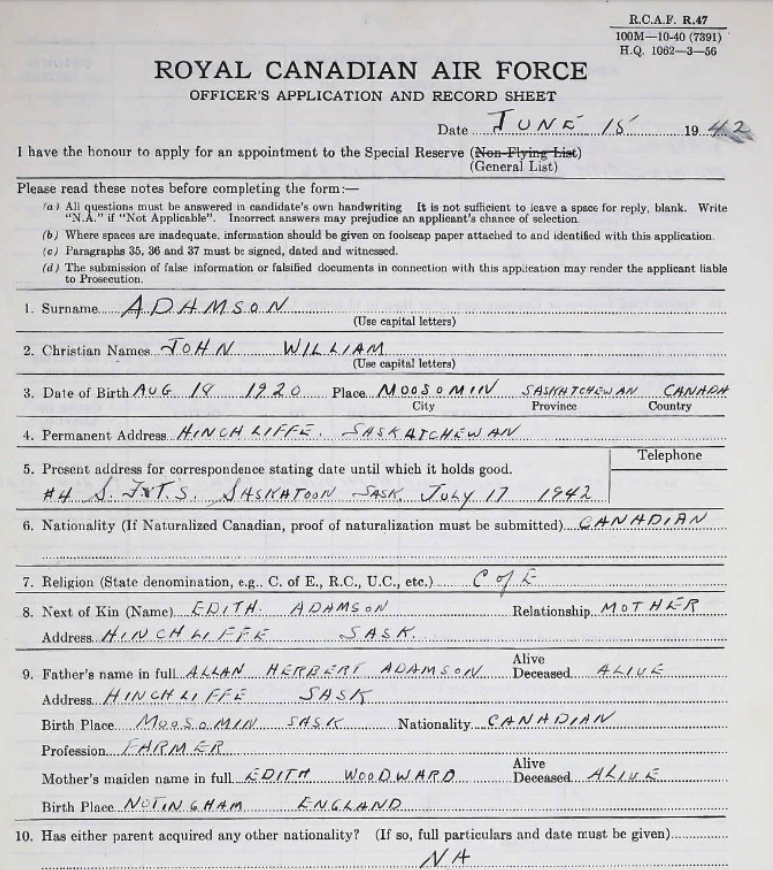 R.C.A.F. R.47
100M—10-40 (7391)
H.Q. 1062—3—56
ROYAL CANADIAN AIR FORCE
OFFICER'S APPLICATION AND RECORD SHEET
Date JUNE 15 1942
I have the honour to apply for an appointment to the Special Reserve (Non-Flying List)
(General List)
Please read these notes before completing the form:—
(a) All questions must be answered in candidate's own handwriting It is not sufficient to leave a space for reply, blank. Write
"N.A." if "Not Applicable". Incorrect answers may prejudice an applicant's chance of selection
(b) Where spaces are inadequate, information should be given on foolscap paper attached to and identified with this application.
(c) Paragraphs 35, 36 and 37 must be signed, dated and witnessed.
(d) The submission of false information or falsified documents in connection with this application may render the applicant liable
to Prosecution.
1. Surname ADAMSON
(Use capital letters)
2. Christian Names JOHN WILLIAM
(Use capital letters)
3. Date of Birth AUG 1920 Place MOOSOMIN SASKATCHEWAN CANADA
City Province Country
4. Permanent Address HINCHLIFFE. SASKATCHEWAN
Telephone
5. Present address for correspondence stating date until which it holds good.
#4 S.F.T.S. SASKATOON SASK. JULY 17 1942
6. Nationality (If Naturalized Canadian, proof of naturalization must be submitted) CANADIAN
7. Religion (State denomination, e.g., C. of E., R.C., U.C., etc.) C of E
8. Next of Kin (Name) EDITH ADAMSON Relationship MOTHER
Address HINCHLIFFE SASK.
9. Father's name in full ALLAN HERBERT ADAMSON Alive
Deceased ALIVE
Address HINCHLIFFE SASK
Birth Place MOOSOMIN SASK Nationality CANADIAN
Profession FARMER
Mother's maiden name in full EDITH WOODWARD Alive
Deceased ALIVE
Birth Place NOTINGHAM ENGLAND
10. Has either parent acquired any other nationality? (If so, full particulars and date must be given)
NA